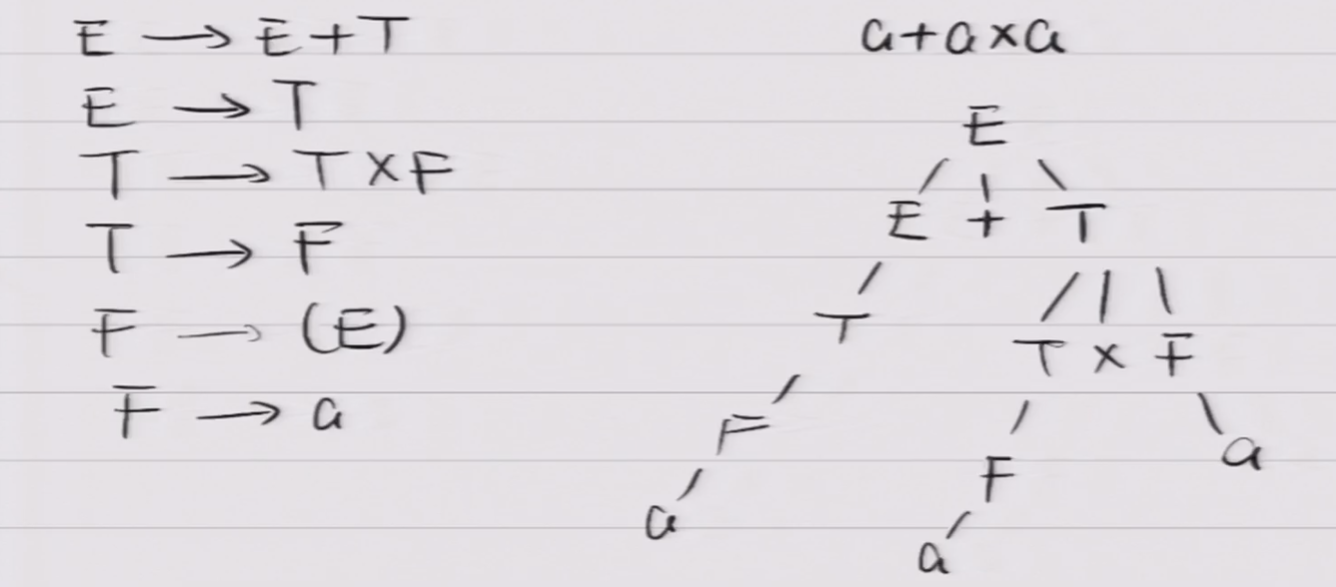 E → E + T
E → T
T → T × F
T → F
F → (E)
F → a
a + a × a
E
E + T
T
T × F
F
a
F
a
a